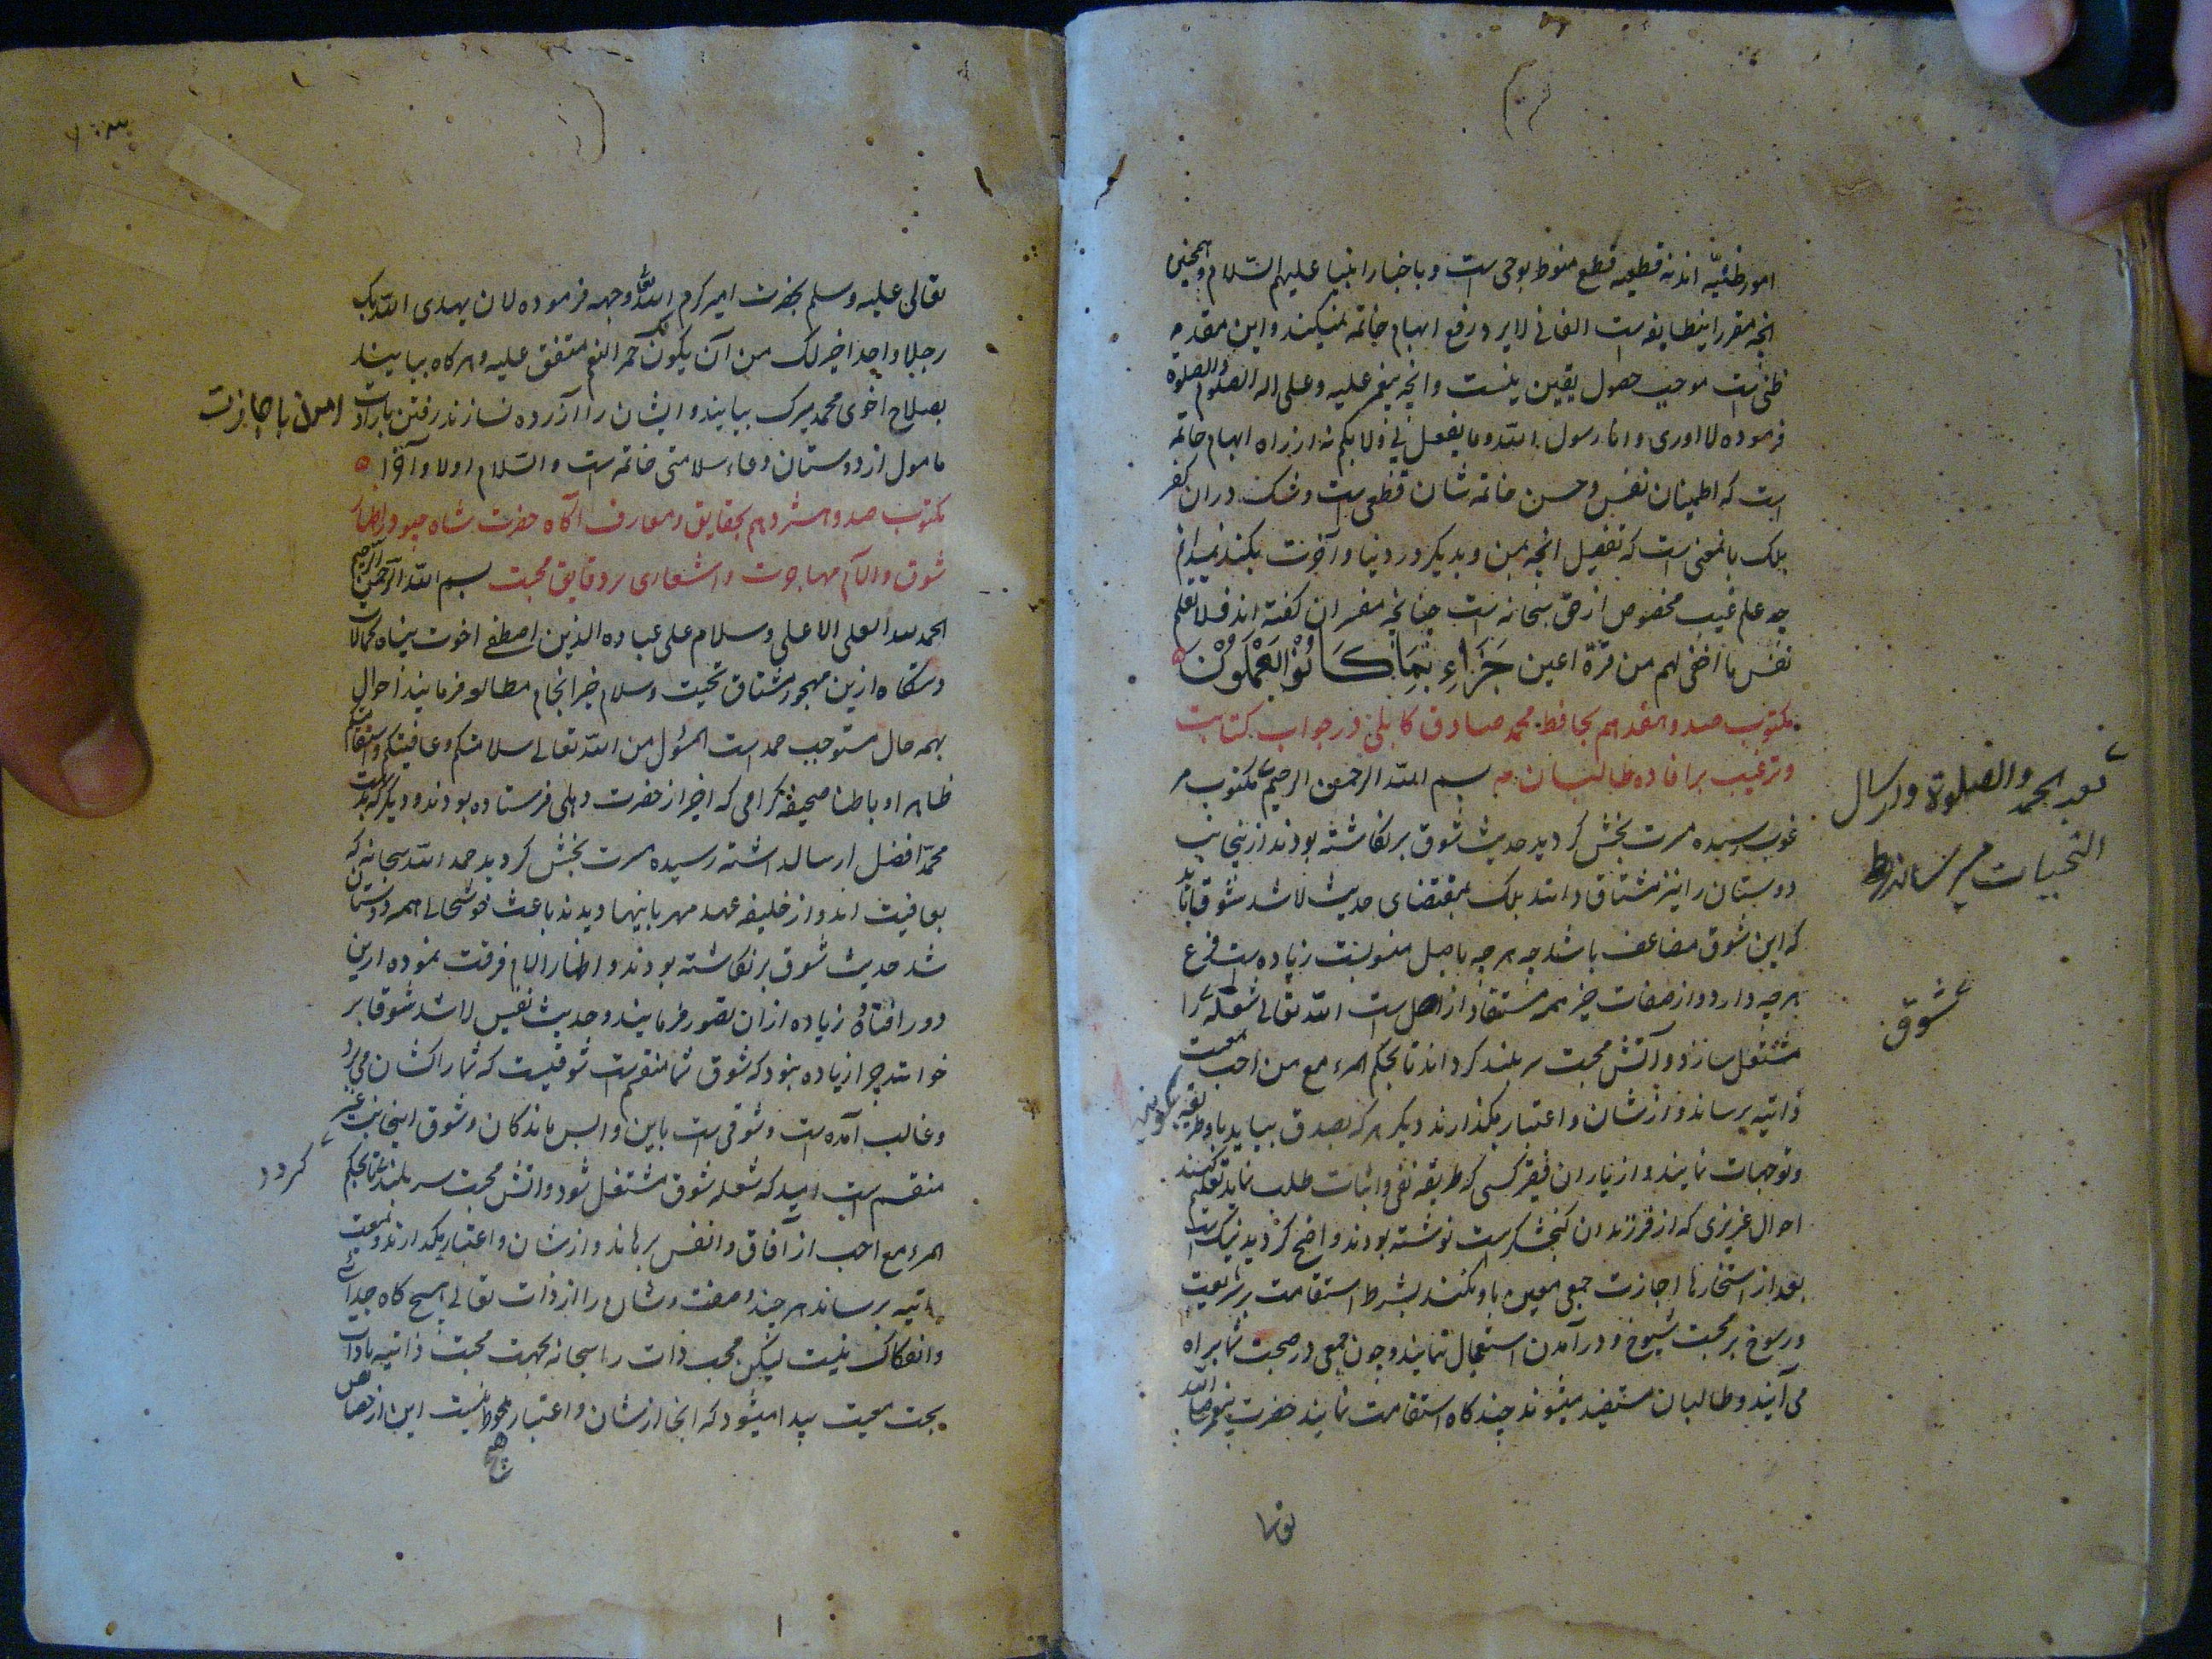 امور ظنیّه اند نه قطعیه قطع منوط بوحی است و باخبار انبیا علیهم السّلام و همچنین
انچه مقرر اینطایفه است الفانی لا یرد رفع ابهام خاتمه نمیکند و این مقدمه
ظنی است موجب حصول یقین نیست و انچه پیغمبر علیه و علی اله الصلوة
فرموده لا ادری و انا رسول الله ما یفعل بی ولا بکم نه از راه ابهام خاتمه
است که اطمینان نفس و حسن خاتمه شان قطعی است و شک دران کفر
بلک بانمعنی است که تفصیل انچه بمن و بدیکر در دنیا و آخرت بکنند نمیدانم
چه علم غیب مخصوص از حق سبحانه است چنانچه مفسران کفته اند فلا تعلم
نفس ما اخفی لهم من قرّة اعین جَزَاءِ بِمَا كَانُوْا يَعْمَلُوْنَ
مکتوب صد و هفدهم بحافظ محمد صادق کابلی در جواب کتابت
و ترغیب بر افاده طالبان بسم الله الرحمن الرحیم مکتوب مر
غوب رسیده مسرت بخش کردید حدیث شوق برنکاشته بودند ازینجانب
دوستان را نیز مشتاق دانند بلک بمقتضای حدیث لا شد شوقا باید
که این شوق مضاعف باشد چه هر چه باصل منسوبست زیاده است فرع
هر چه دارد و از صفات خیر همه مستفاد از اصل است الله تعالی شعله را
مشتعل سازد و آتش محبت سر بلند کرداند تا بحکم المرء مع من احب معیت
ذاتیه برساند و از شان و اعتبار بکذارند دیکر هر که بصدق بیاید باو طریقه بکویند
و توجهات نمایند و از یاران فقیر کسی که طریقه نفی و اثبات طلب نماید تعلیم کنند
احوال عزیزی که از فرزندان کنجشکر است نوشته بودند واضح کردید نیک است
بعد از استخارها اجازت جمعی معین باو بکنند بشرط استقامت بر شریعت
و رسوخ بر محبت شیوخ و در آمدن استعجال ننمایند و چون جمعی در صحبت شما براه
می آیند و طالبان مستفید میشوند چند کاه استقامت نمایند حضرت پیغمبر صلی الله
تعا
بعد الحمد والصلوة و ارسال
التحیات میرساند
شوق
تعالی علیه و سلم بحضرت امیر کرم الله وجهه فرموده لان یهدی الله بک
رجلا واحدا خیر لک من آن یکون لک حمر النعم متفق علیه و هرکاه بیایند
بصلاح اخوی محمد میرک بیایند و ایشان را آزرده نسازند رفتن
مامول از دوستان دعاء سلامتی خاتمه است والسّلام اولا و آخرا
مکتوب صد و هشردهم بحقایق و معارف آکاه حضرت شاه جیو در اظهار
شوق و الآم مهاجرت و اشعاری بر دقایق محبت بسم الله الرحمن الرحیم
الحمد لله العلی الاعلی و سلام علی عباده الذین اصطفی اخوت پناه کمالات
دستکاه ازین مهجور مشتاق تحیت و سلام خیر انجام مطالعه فرمایند احوال
بهمه حال مستوجب حمد است المسئول من الله تعالی سلامتکم و عافیتکم و استقامتکم
ظاهرا و باطنا صحیفه کرامی که اخر از حضرت دهلی فرستاده بودند و دیکر که بدست
محمّد افضل ارسال داشته رسیده مسرت بخش کردید حمد الله سبحانه که
بعافیت اند و از خلیفه عهد مهربانیها دیدند باعث خوشحالی همه دوستان
شد حدیث شوق برنکاشته بودند و اظهار الام فرقت نموده ازین
دور افتاده زیاده ازان تصور فرمایند و حدیث نفیس لا شد شوقا بر
خوانند چرا زیاده نبود که شوق شما منقسم است شوقیست که شما را کشان می برد
و غالب آمده است و شوقی است باین واپس ماندکان و شوق اینجانب غیر
منقسم است امید که شعله شوق مشتعل شود و اتش محبت سر بلند تا بحکم
کردد
المرء مع احب از آفاق و انفس برهاند و از شان و اعتبار بکذارند و بمعیت
ذاتیه برساند هر چند صفت و شان را از ذات تعالی هیچ کاه جدائی
و انفکاک نیست لیکن محب ذات را سبحانه بجهت محبت ذاتیه باذات
بحت معیت پیدا میشود که انجا از شان و اعتبار ملحوظ نیست این از خصایص
هیچ